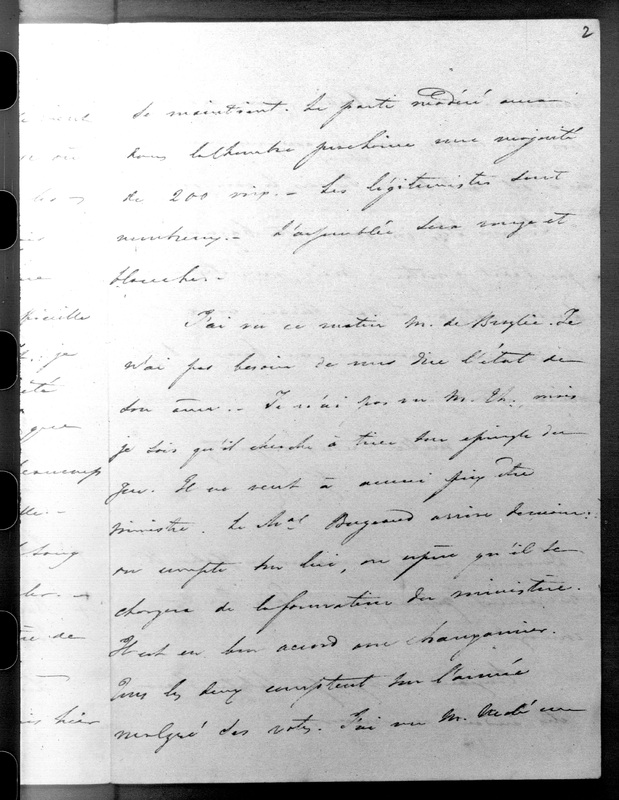 2
se maintient. Le parti modéré aura
dans la Chambre prochaine une majorité
de 200 voix. - Les légitimistes sont
nombreux. - L'assemblée sera rouge et
blanche. -
J'ai vu ce matin M. de Broglie. Je
n'ai pas besoin de vous dire l'état de
son âme. - Je n'ai pas vu M. Th. mais
je sais qu'il cherche à tirer son épingle du
jeu. Il ne veut à aucun prix être
ministre. Le Mal Bugeaud arrive demain:
on compte sur lui, on espère qu'il se
chargera de la formation du ministère.
Il est en bon accord avec Changarnier.
Tous les deux comptent sur l'armée
malgré ses votes. J'ai vu M.